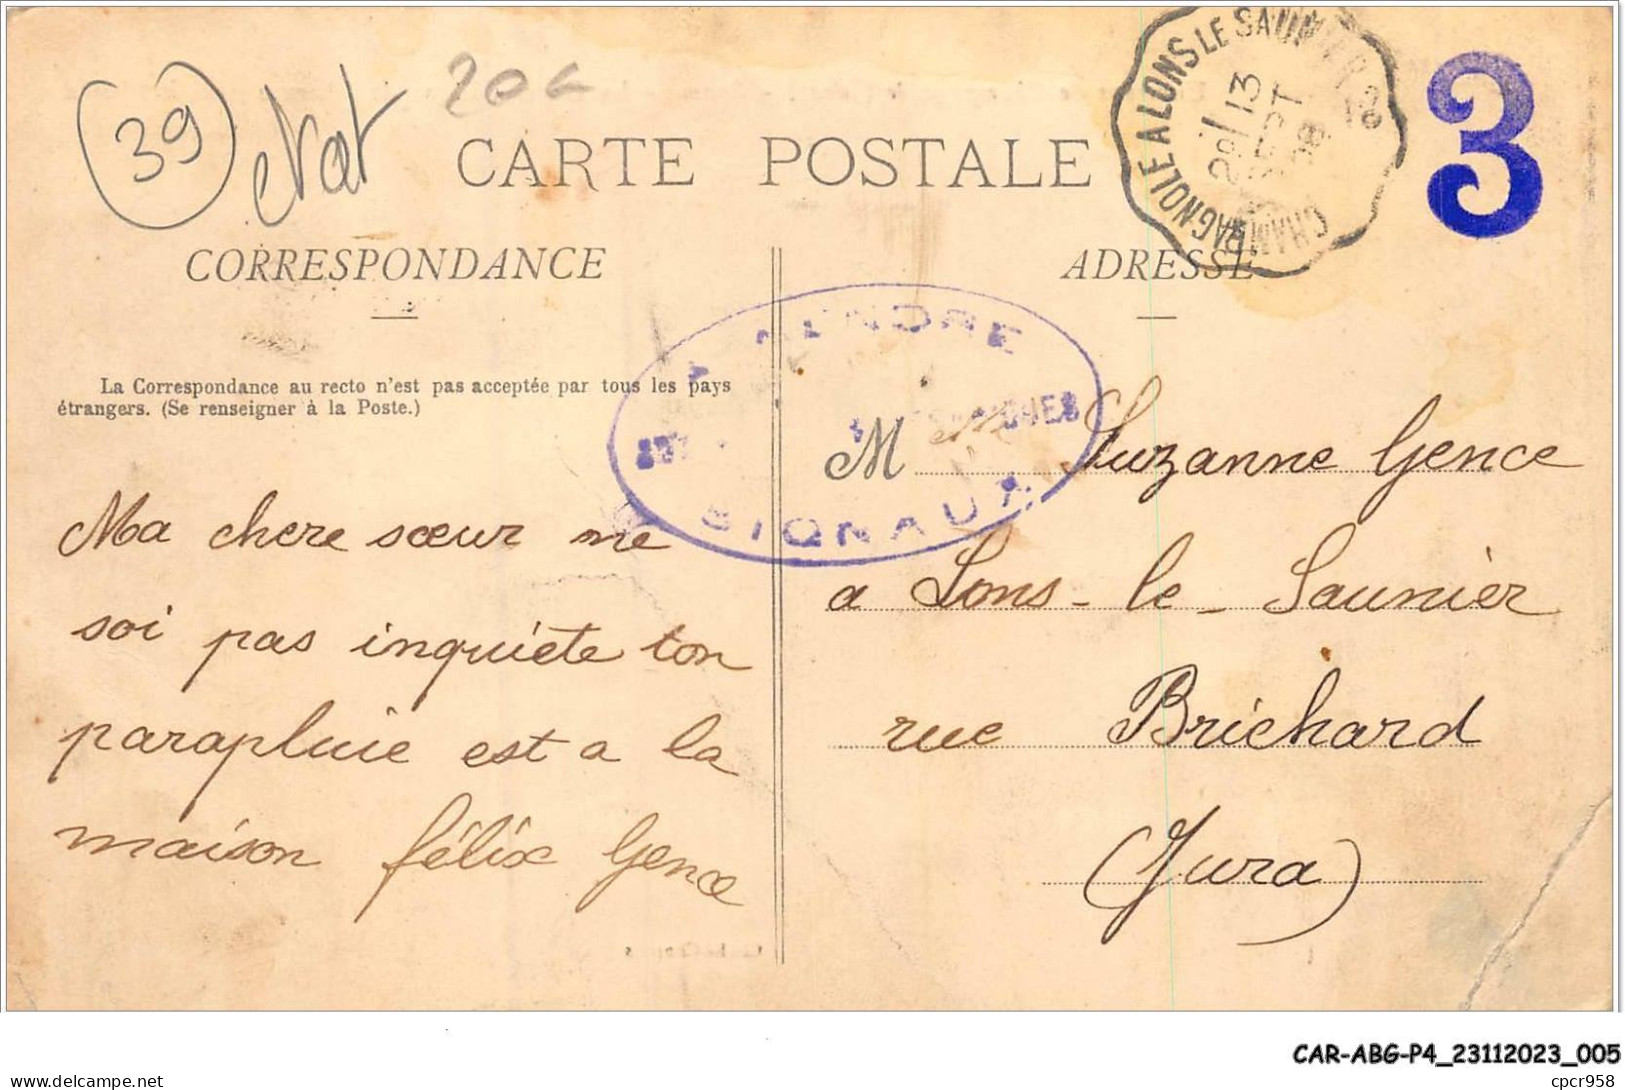 39
Nat
CARTE POSTALE
CHAMPAGNOLE A LONS LE SAUNIER
13
SEPT
08
3
CORRESPONDANCE
ADRESSE
La Correspondance au recto n'est pas acceptée par tous les pays
étrangers. (Se renseigner à la Poste.)
SIGNAUX
Ma chere sœur ne
soi pas inquiete ton
parapluie est a la
maison félix Gence
M Suzanne Gence
a Lons-le-Saunier
rue Brichard
(Jura)
CAR-ABG-P4_23112023_005
delcampe.net
cpcr958